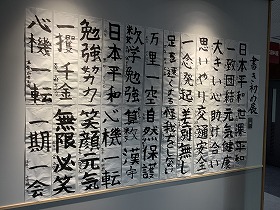 書き初め展
日本平和 世界平和
一致団結 元気健康
大きい心 助け合い
思いやり 交通安全
一念発起 差別無し
万里一空 自然保護
数学勉強 算数漢字
日本平和 心機一転
勉強努力 笑顔元気
一攫千金 無限必笑
心機一転 一期一会